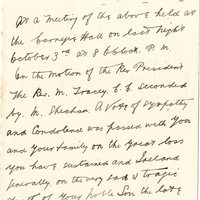 At a meeting of the above held at
the Carnegie Hall on last night
October 3rd at 8 O'Clock P.M.
On the motion of the Rev President
The Rev. M. Tracey. C.C. seconded
by M. Sheahan A Vote of sympathy
and Condolence was passed with you
and your family on the great loss
you have sustained and Ireland
generally, on the very sad & tragic
death of your noble Son the late